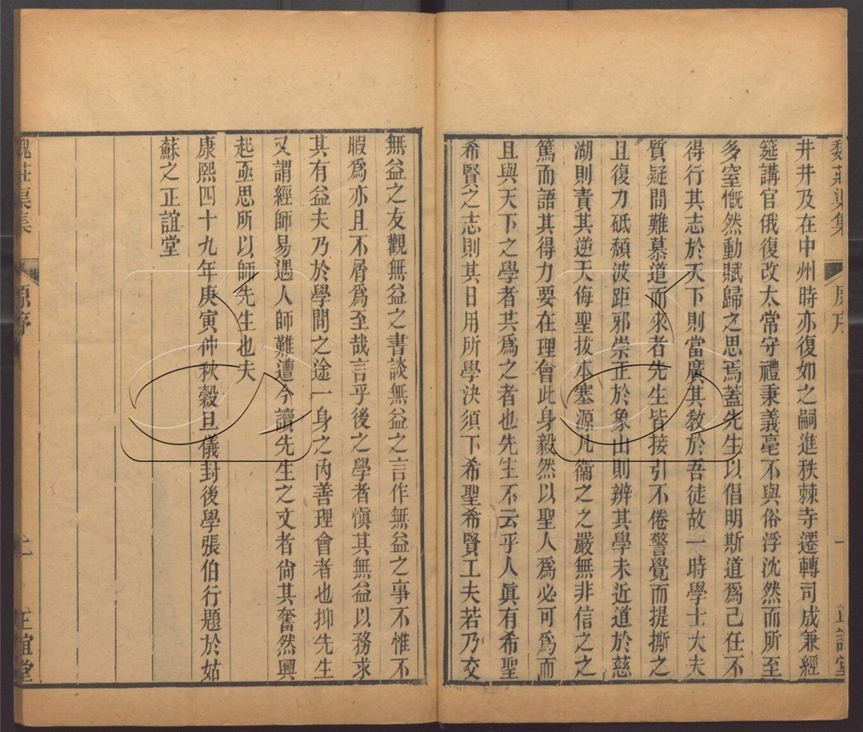 魏莊渠集
原序
一
正誼堂
井井及在中州時亦復如之嗣進秩棘寺遷轉司成兼經
筵講官俄復改太常守禮秉義毫不與俗浮沈然而所至
多窒慨然動賦歸之思焉蓋先生以倡明斯道為己任不
得行其志於天下則當廣其教於吾徒故一時學士大夫
質疑問難慕道而求者先生皆接引不倦警覺而提撕之
且復力砥頹波距邪崇正於象山則辨其學未近道於慈
湖則責其逆天侮聖拔本塞源凡衞之之嚴無非信之之
篤而語其得力要在理會此身毅然以聖人為必可為而
且與天下之學者共為之者也先生不云乎人眞有希聖
希賢之志則其日用所學決須下希聖希賢工夫若乃交
無益之友觀無益之書談無益之言作無益之事不惟不
暇為亦且不屑為至哉言乎後之學者愼其無益以務求
其有益夫乃於學問之途一身之內善理會者也抑先生
又謂經師易遇人師難遭今讀先生之文者尙其奮然興
起亟思所以師先生也夫
康熙四十九年庚寅仲秋穀旦儀封後學張伯行題於姑
蘇之正誼堂
魏莊渠集
原序
正誼堂